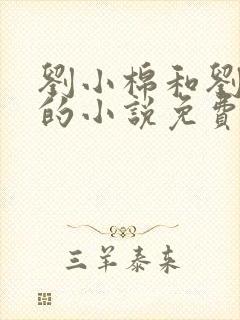 劉小棉和劉
的小説免費
三羊泰来